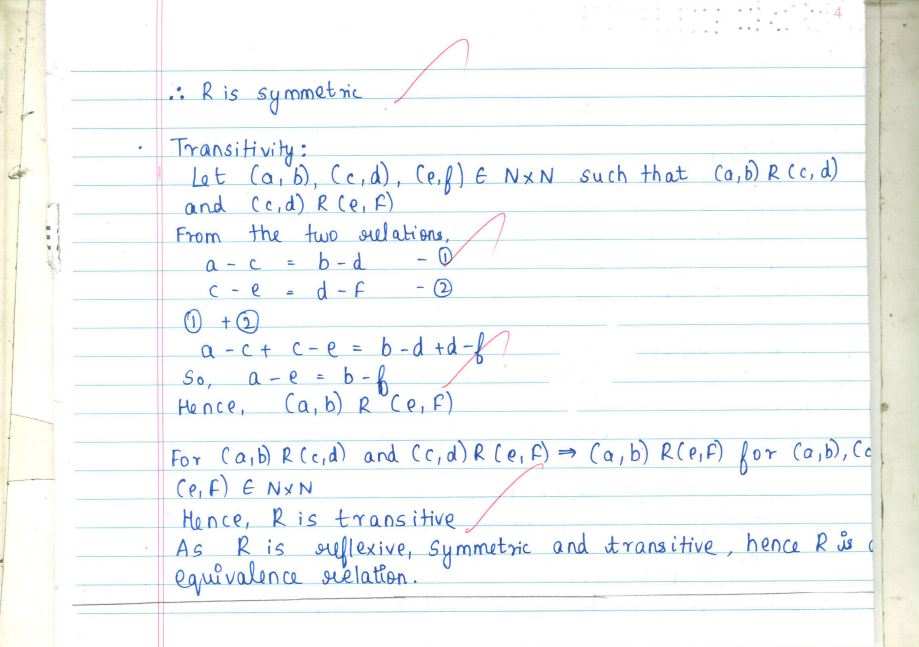 4
∴ R is symmetric
Transitivity:
Let (a, b), (c, d), (e, f) ∈ N×N such that (a, b) R (c, d)
and (c, d) R (e, f)
From the two relations,
a - c = b - d - ①
c - e = d - f - ②
① + ②
a - c + c - e = b - d + d - f
So, a - e = b - f
Hence, (a, b) R (e, f)
For (a, b) R (c, d) and (c, d) R (e, f) ⇒ (a, b) R (e, f) for (a, b), (c
(e, f) ∈ N×N
Hence, R is transitive
As R is reflexive, symmetric and transitive, hence R is
equivalence relation.